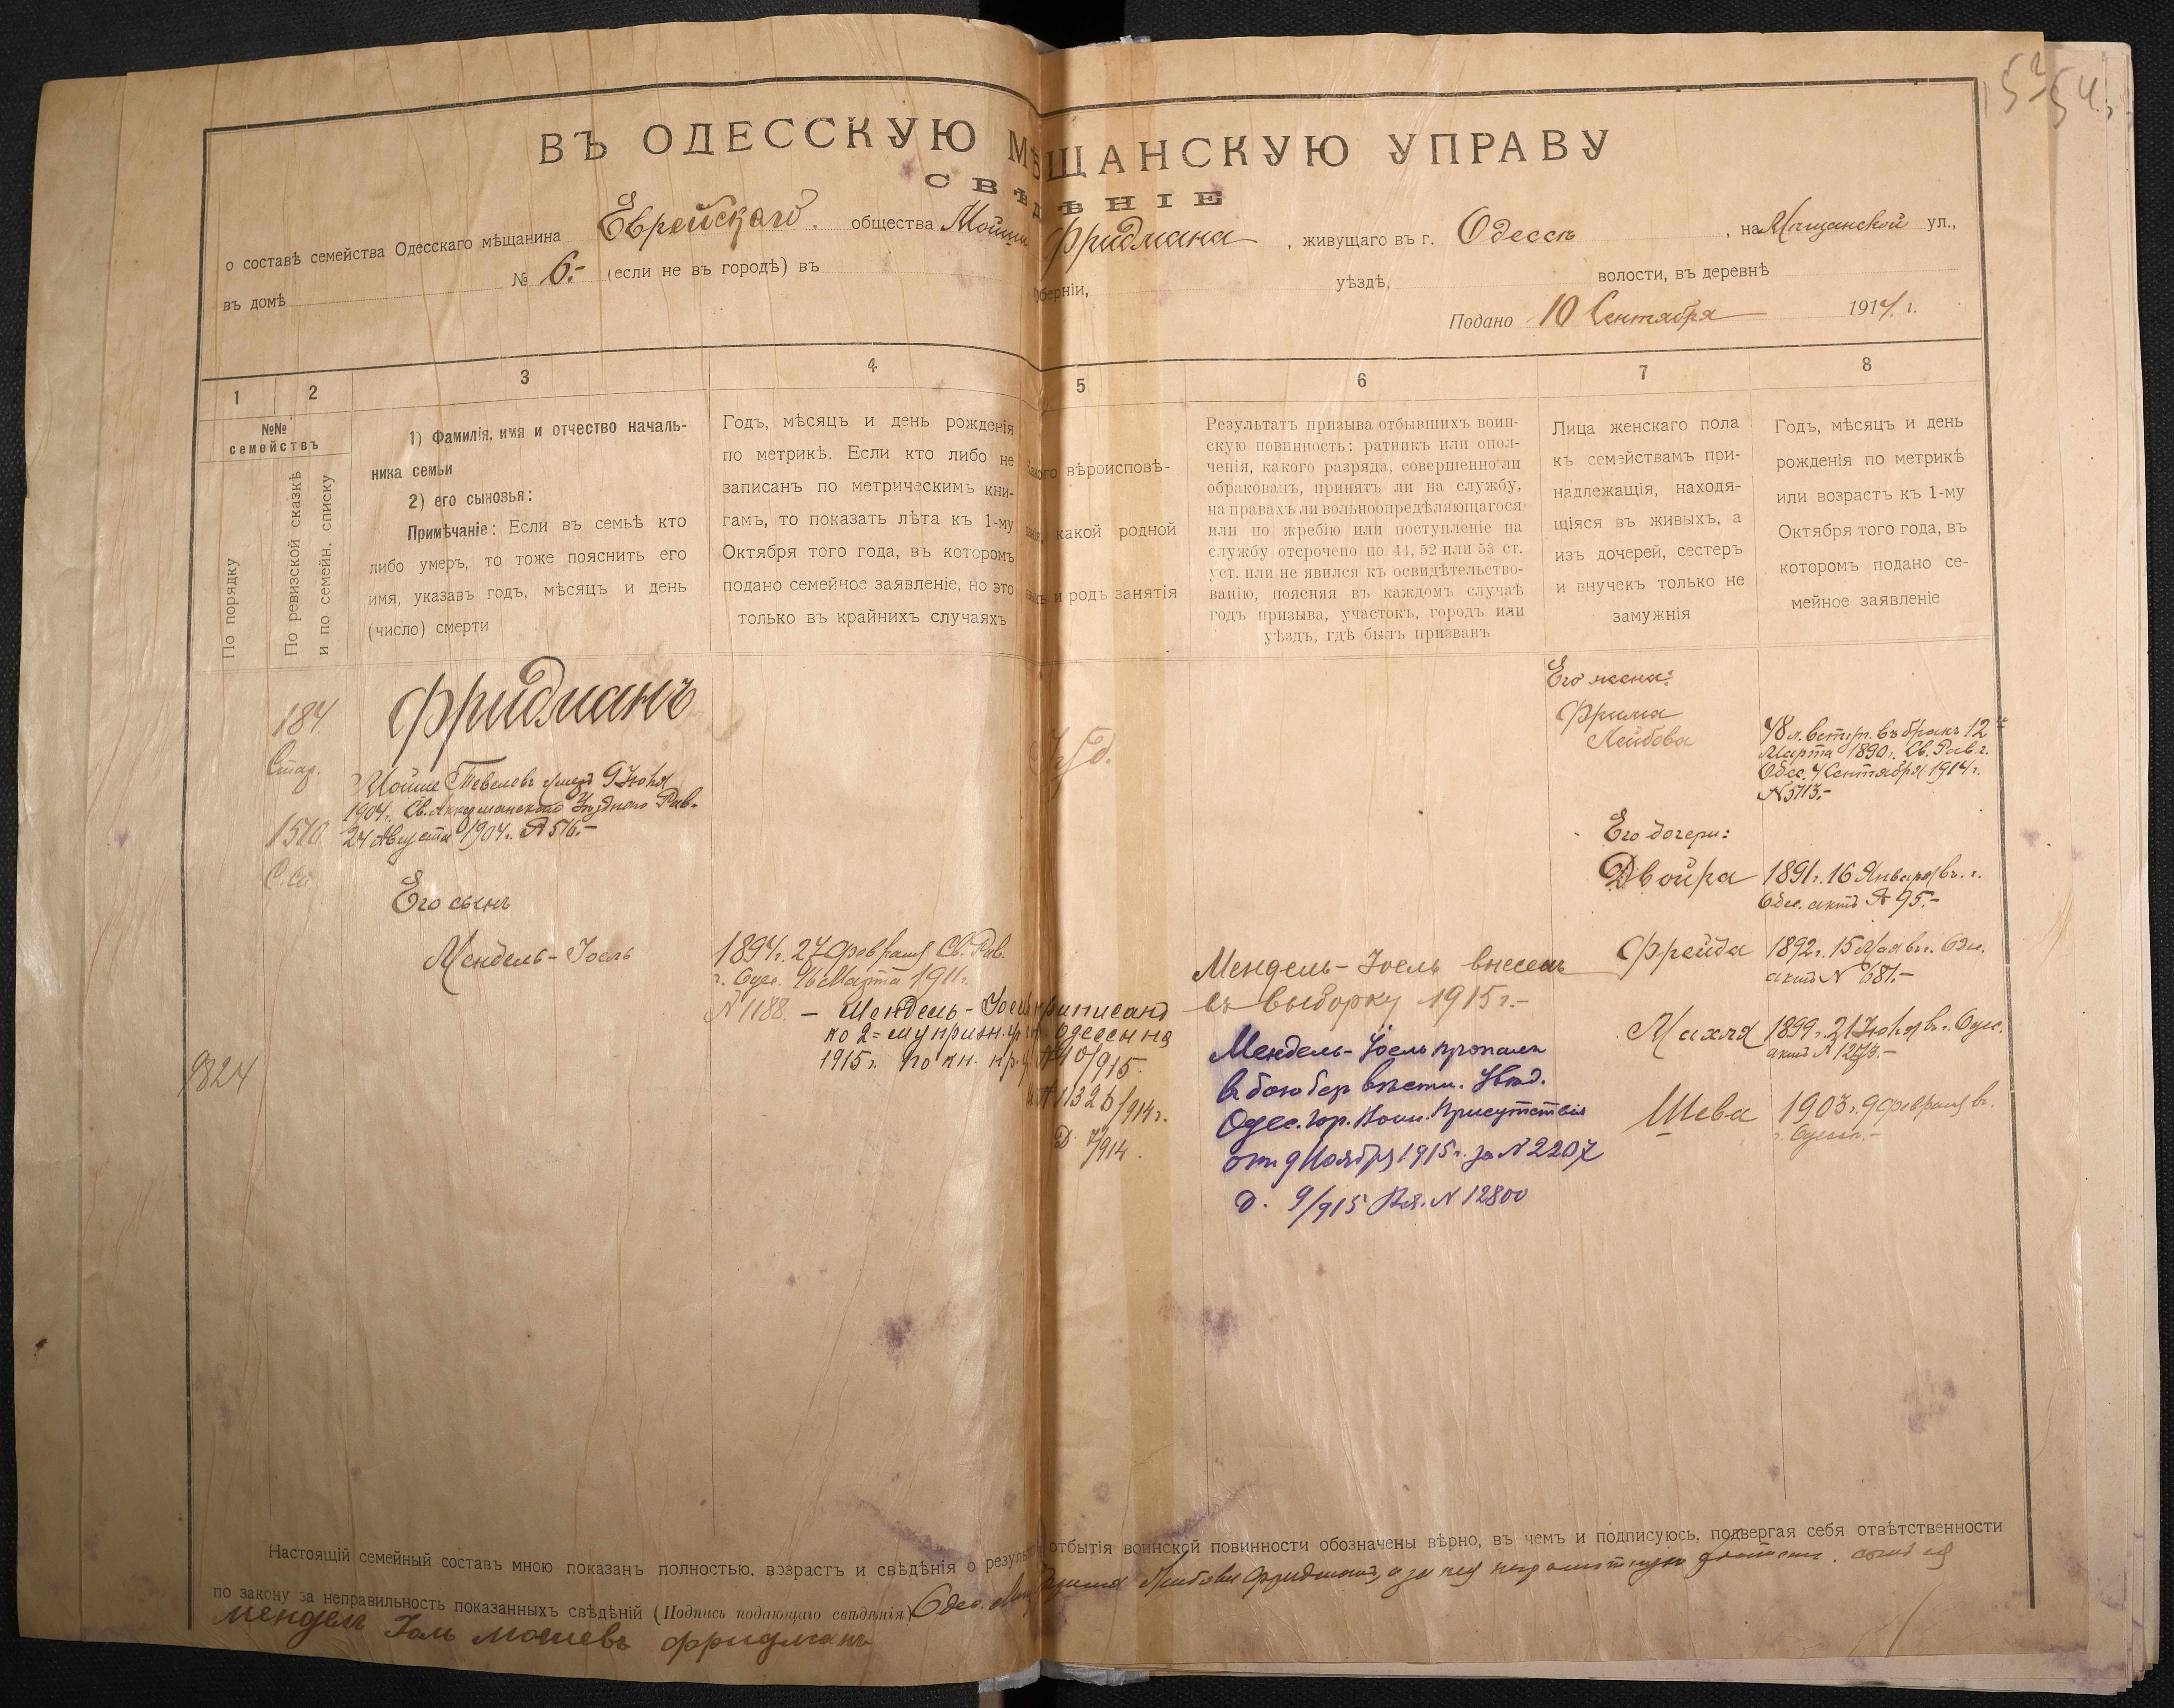 52 54
ВЪ ОДЕССКУЮ МѢЩАНСКУЮ УПРАВУ
СВѢДѢНІЕ
о составѣ семейства Одесскаго мѣщанина Еврейскаго общества Мойши Фридмана, живущаго въ г. Одессѣ, на Мѣщанской ул.,
въ домѣ № 6.- (если не въ городѣ) въ губерніи, уѣздѣ, волости, въ деревнѣ
Подано 10 Сентября 1914 г.
1 2 3 4 5 6 7 8
№№
семействъ
По порядку
По ревизской сказкѣ
и по семейн. списку
1) Фамилія, имя и отчество началь-
ника семьи
2) его сыновья:
Примѣчаніе: Если въ семьѣ кто
либо умеръ, то тоже пояснить его
имя, указавъ годъ, мѣсяцъ и день
(число) смерти
Годъ, мѣсяцъ и день рожденія
по метрикѣ. Если кто либо не
записанъ по метрическимъ кни-
гамъ, то показать лѣта къ 1-му
Октября того года, въ которомъ
подано семейное заявленіе, но это
только въ крайнихъ случаяхъ
Какого вѣроисповѣ-
данія, какой родной
языкъ и родъ занятія
Результатъ призыва отбывшихъ воин-
скую повинность: ратникъ или опол-
ченія, какого разряда, совершенно ли
обракованъ, принятъ ли на службу,
на правахъ ли вольноопредѣляющагося
или по жребію или поступленіе на
службу отсрочено по 44, 52 или 53 ст.
уст. или не явился къ освидѣтельство-
ванію, поясняя въ каждомъ случаѣ
годъ призыва, участокъ, городъ или
уѣздъ, гдѣ былъ призванъ
Лица женскаго пола
къ семействамъ при-
надлежащія, находя-
щіяся въ живыхъ, а
изъ дочерей, сестеръ
и внучекъ только не
замужнія
Годъ, мѣсяцъ и день
рожденія по метрикѣ
или возрастъ къ 1-му
Октября того года, въ
которомъ подано се-
мейное заявленіе
184
Стар.
1510
С. сп
9824
Фридманъ
Мойше Тевелевъ умеръ 9 Іюня
1904 г. Св. Аккерманскаго Уѣзднаго Рав.
24 Августа 1904 г. № 516.-
Его сынъ
Мендель-Іоель
1894 г. 27 Февраля Св. Рав.
г. Одес. 16 Марта 1911 г.
№ 1188. - Мендель-Іоель приписанъ
ко 2=му призн. уч. г. Одессы на
1915 г. по кн. пр. уч. № 40/915.
и № 11326/914 г.
Д. 7/914.
Іуд.
Мендель-Іоель внесенъ
въ выборку 1915 г.-
Мендель-Іоель пропалъ
въ бою безъ вѣсти. Увѣд.
Одес. Гор. Воин. Присутствія
отъ 9 Ноября 1915 г. за № 2207
Д. 9/915 Вх. № 12800
Его жена:
Фрима
Лейбова
48 л. вступ. въ бракъ 12го
Марта 1890 г. Св. Рав. г.
Одес. 4 Сентября 1914 г.
№ 5713.-
Его дочери:
Двойра 1891 г. 16 Января въ г.
Одес. актъ № 95.-
Фрейда 1892 г. 15 Мая въ г. Одес.
актъ № 681.-
Махля 1899 г. 21 Іюня въ г. Одес.
актъ № 1273.-
Шева 1903 г. 9 Февраля въ
г. Одессѣ.-
Настоящій семейный составъ мною показанъ полностью, возрастъ и свѣдѣнія о результатѣ отбытія воинской повинности обозначены вѣрно, въ чемъ и подписуюсь, подвергая себя отвѣтственности
по закону за неправильность показанныхъ свѣдѣній (Подпись подающаго свѣдѣнія) Одес. Мѣщ. Фрима Лейбова Фридманъ, а за нея неграмотную росписался сынъ ея
Мендель Іоль Мошевъ Фридманъ